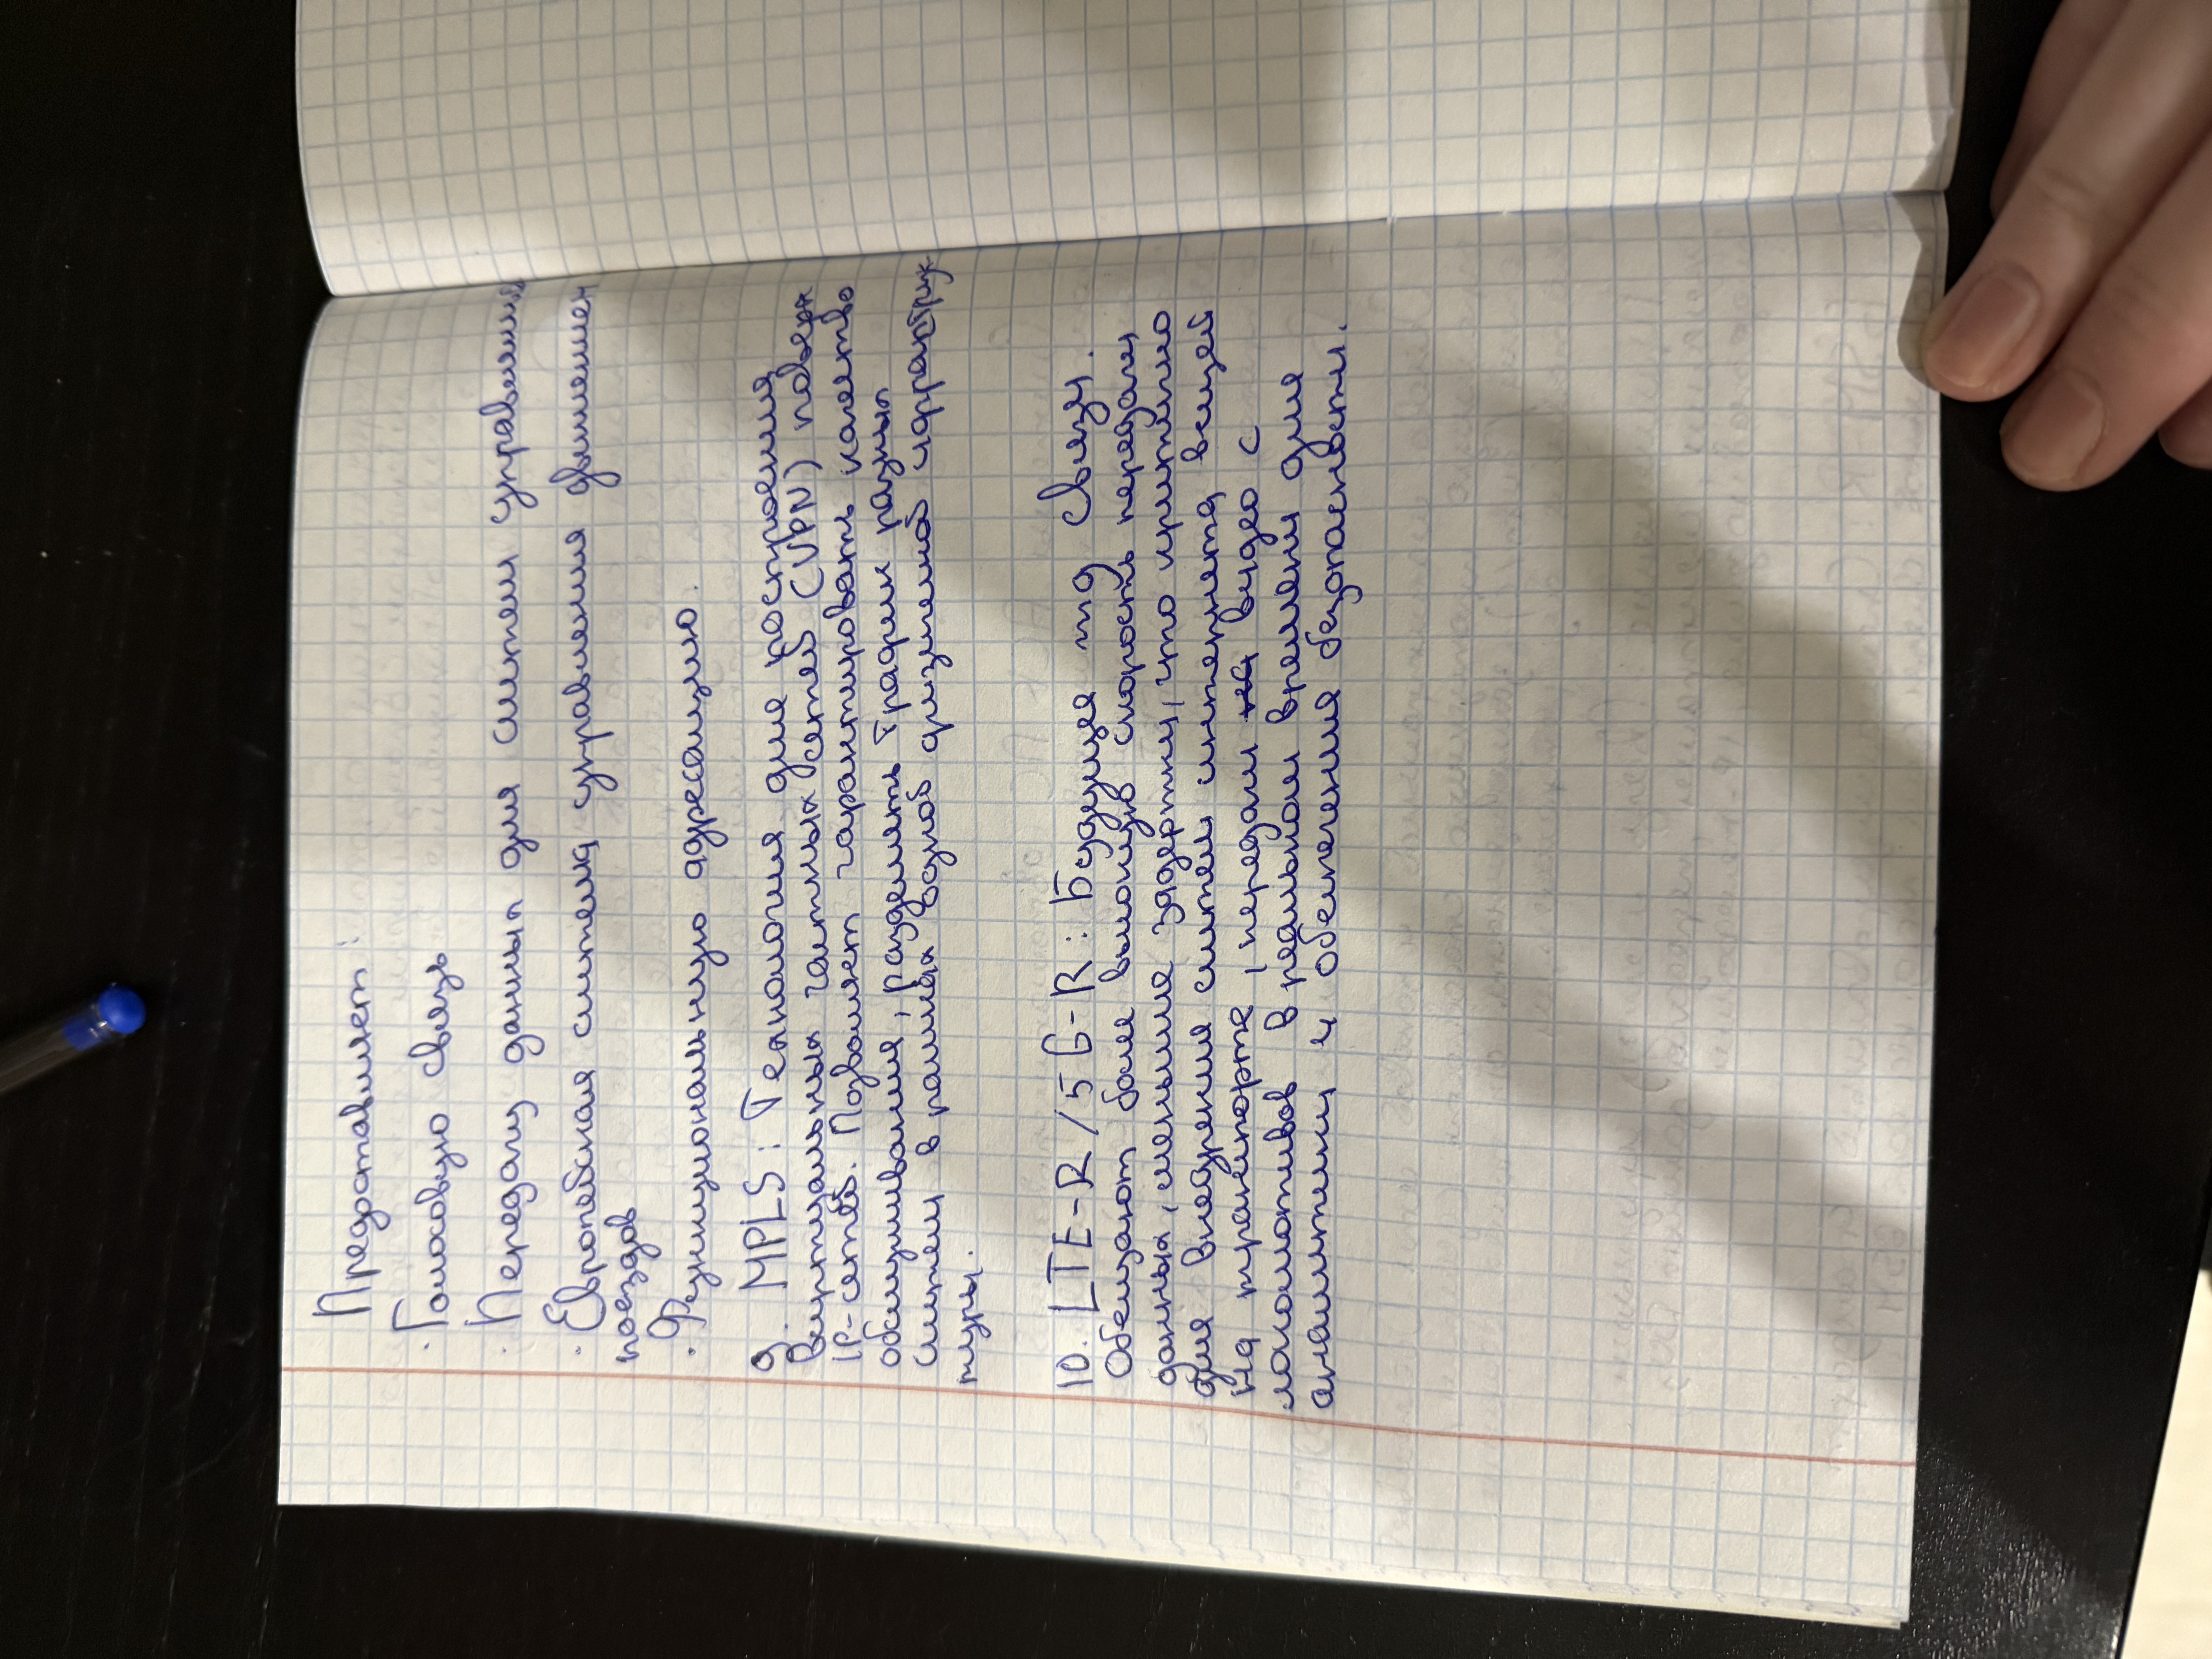 Предоставляет:
· Голосовую связь
· Передачу данных для систем управления
· Европейская система управления движением
поездов
· Функциональную адресацию.
9. MPLS: Технология для построения
виртуальных частных сетей (VPN) поверх
IP-сетей. Позволяет гарантировать качество
обслуживания, разделять трафик разных
систем в рамках одной физической инфраструк
туры.
10. LTE-R/5G-R: Будущее ж/д связи.
Обещают более высокую скорость передачи
данных, меньшие задержки, что критично
для внедрения систем интернета вещей
на транспорте, передачи видео с
локомотивов в реальном времени для
аналитики и обеспечения безопасности.